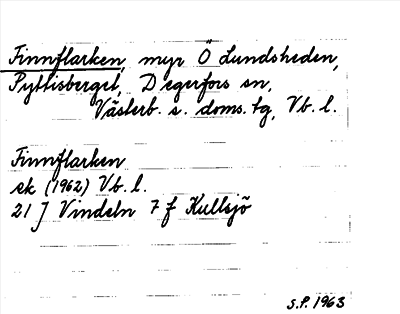 Finnflarken, myr Ö Lundsheden,
Pyttisberget, Degerfors sn,
Västerb. s. doms. tg, Vb. l.
Finnflarken
ek (1962) Vb. l.
21 J Vindeln 7 f Kullsjö
S.P. 1963